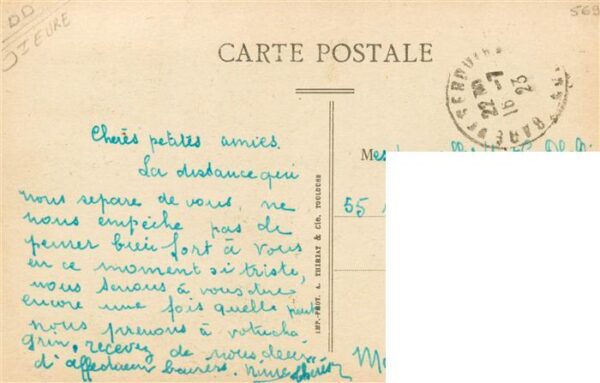 DD
JIEURE
569
CARTE POSTALE
22 30
16 - 7
23
GARE
Chères petites amies.
La distance qui
nous separe de vous, ne
nous empêche pas de
penser bien fort à vous
en ce moment si triste,
nous tenons à vous dire
encore une fois quelle part
nous prenons à votre cha
grin, recevez de nous deux
d'affectueux baisers.
55
IMP.-PHOT. A. THIRIAT & Cie. TOULOUSE